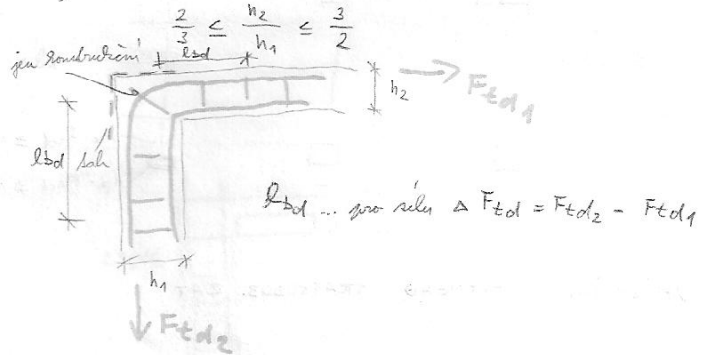 2/3 ≤ h2/h1 ≤ 3/2
jen konstrukční
lbd
h2
Ftd1
lbd
lbd ... pro sílu Δ Ftd = Ftd2 - Ftd1
h1
Ftd2